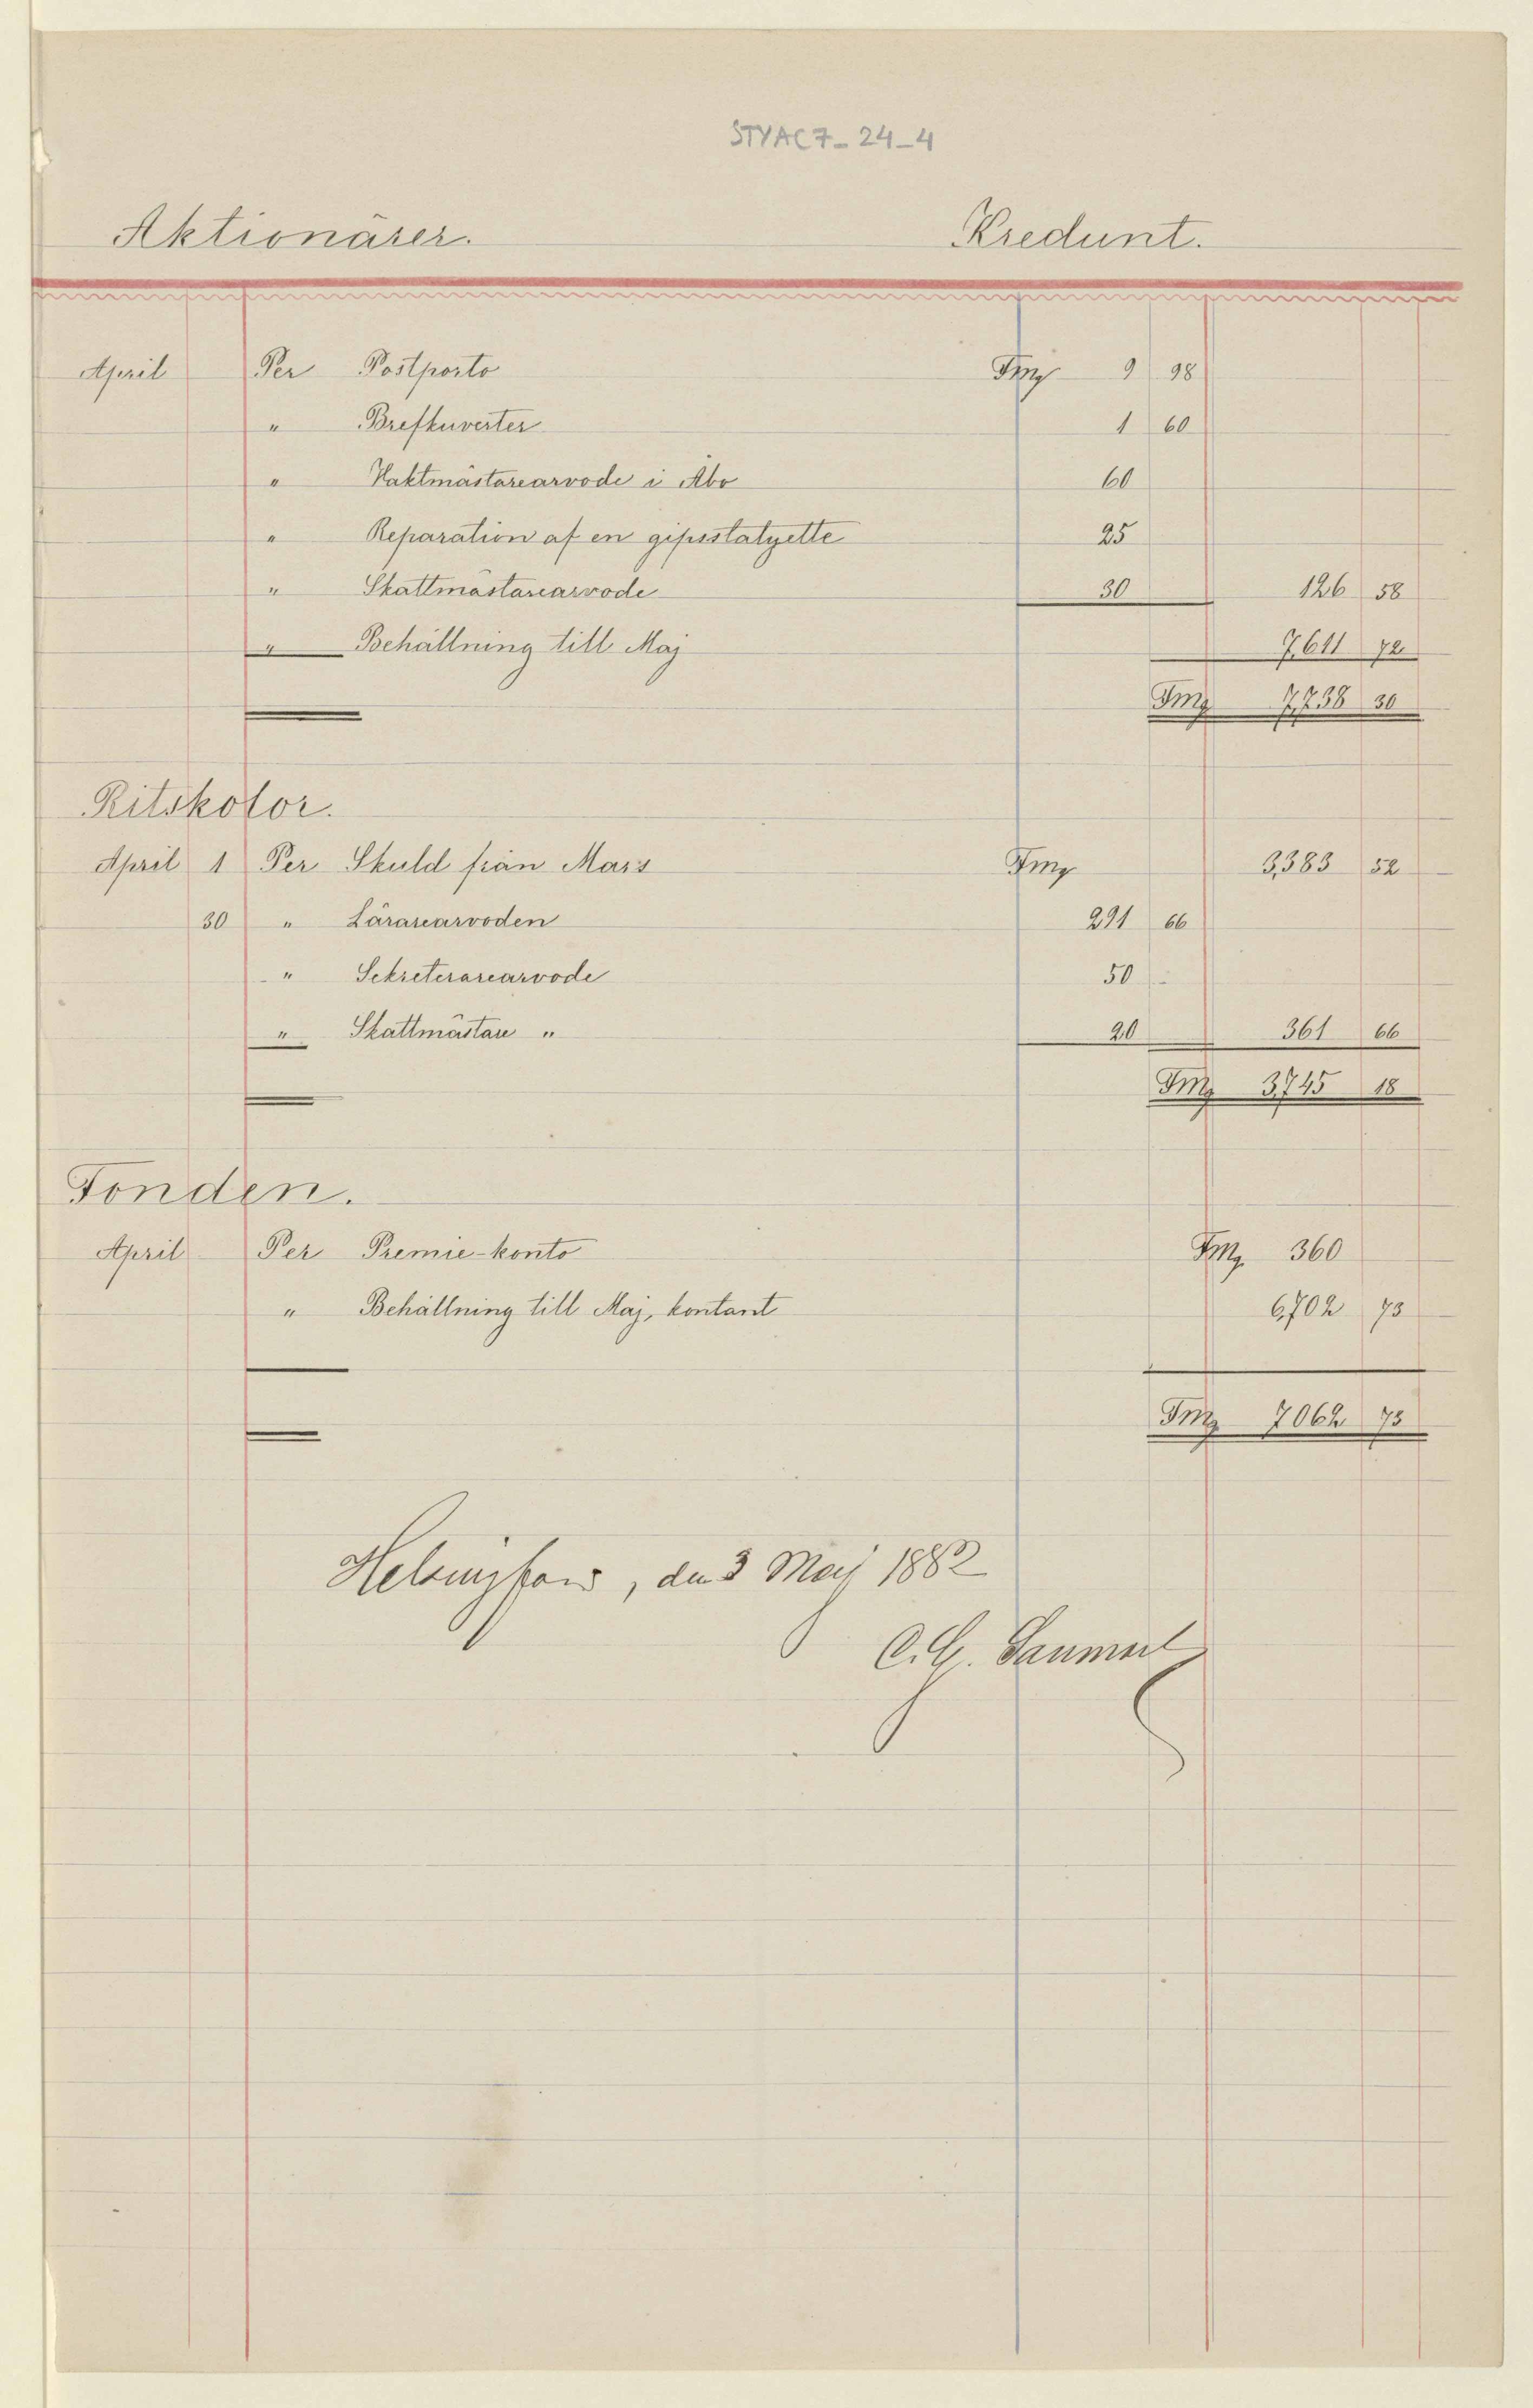 STYAC7_24_4
Aktionärer. Kredunt.
April Per Postporto Fmg 9 98
" Brefkuverter 1 60
" Vaktmästarearvode i Åbo 60
" Reparation af en gipsstatyette 25
" Skattmästarearvode 30 126 58
" Behållning till Maj 7,611 72
Fmg 7,738 30
Ritskolor.
April 1 Per Skuld från Mars Fmg 3,383 52
30 " Lärarearvoden 291 66
" Sekreterarearvode 50 -
" Skattmästare " 20 361 66
Fmg 3,745 18
Fonden.
April Per Premie-konto Fmg 360
" Behållning till Maj, kontant 6,702 73
Fmg 7062 73
Helsingfors, den 3 Maj 1882
C. G. Sanmark